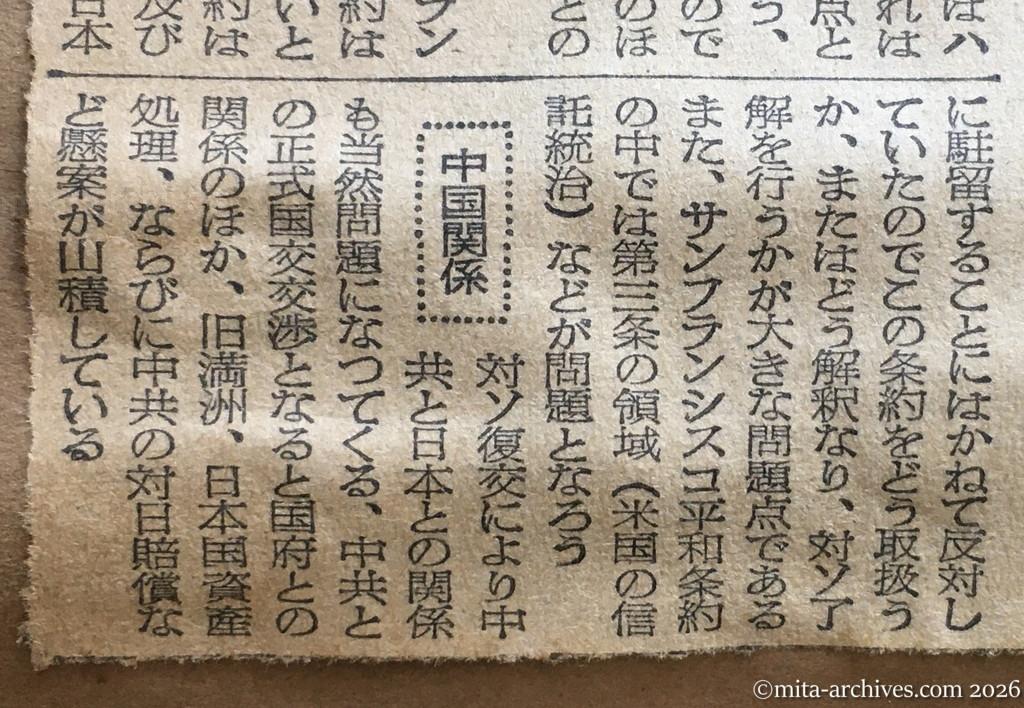 はハ
れは
点と
う、
ので
のほ
との
ン
約は
いと
約は
及び
日本
に駐留することにはかねて反対し
ていたのでこの条約をどう取扱う
か、またはどう解釈なり、対ソ了
解を行うかが大きな問題点である
また、サンフランシスコ平和条約
の中では第三条の領域（米国の信
託統治）などが問題となろう
中国関係
対ソ復交により中
共と日本との関係
も当然問題になつてくる、中共と
の正式国交交渉となると国府との
関係のほか、旧満洲、日本国資産
処理、ならびに中共の対日賠償な
ど懸案が山積している
©mita-archives.com 2026